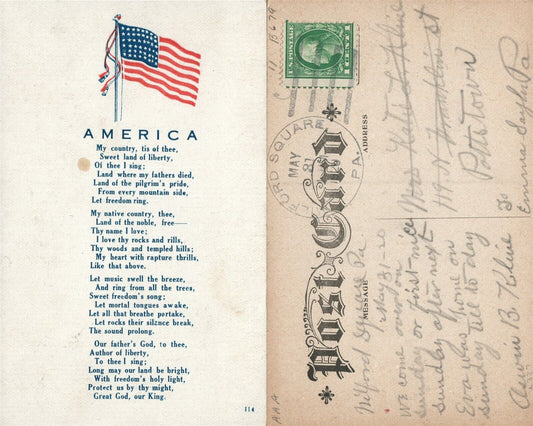 AMERICA
My country, tis of thee,
Sweet land of liberty,
Of thee I sing;
Land where my fathers died,
Land of the pilgrim's pride,
From every mountain side,
Let freedom ring.
My native country, thee,
Land of the noble, free—
Thy name I love;
I love thy rocks and rills,
Thy woods and templed hills;
My heart with rapture thrills,
Like that above.
Let music swell the breeze,
And ring from all the trees,
Sweet freedom's song;
Let mortal tongues awake,
Let all that breathe partake,
Let rocks their silznce break,
The sound prolong.
Our father's God, to thee,
Author of liberty,
To thee I sing;
Long may our land be bright,
With freedom's holy light,
Protect us by thy might,
Great God, our King.
114
B679
U.S. POSTAGE
1 CENT 1
FORD SQUARE
MAY
31
PA.
Post Card
ADDRESS
MESSAGE
Kline
Franklin St
Pottstown
Pa
To
Emma Saylor Pa
Milford Square Pa
May 31-20
We come over on
Sunday or first nice
Sunday after next
Eva was home on
Sunday till to day
Annie B. Kline
AAA